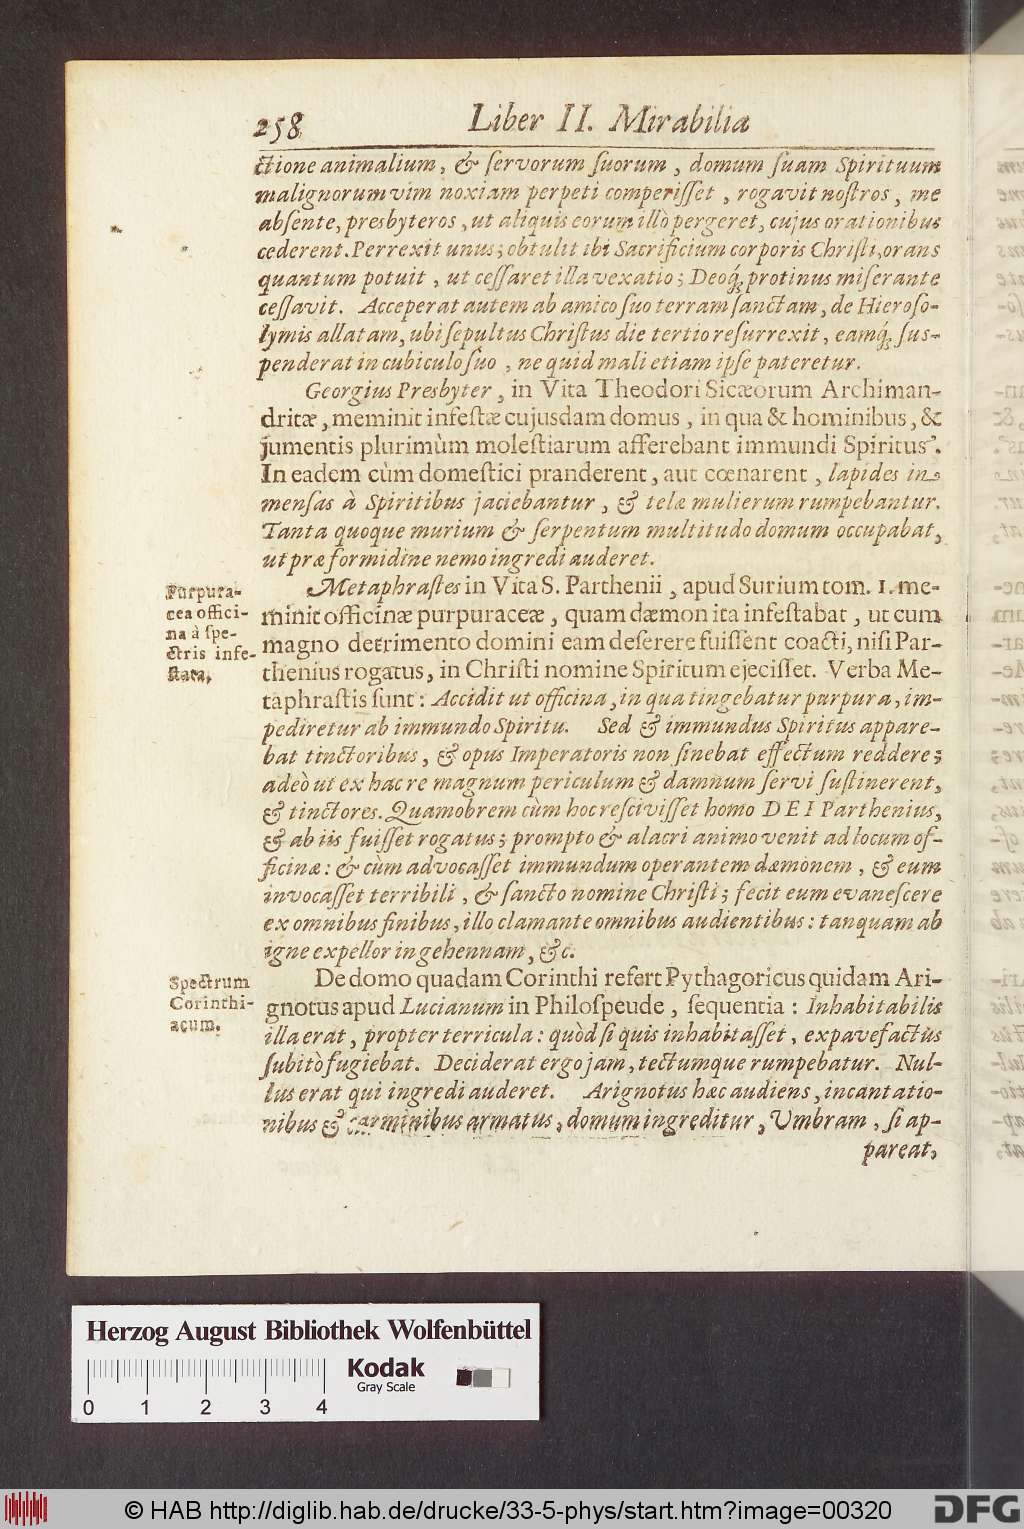 258 Liber II. Mirabilia
ctione animalium, & ſervorum ſuorum, domum ſuam Spirituum
malignorum vim noxiam perpeti comperiſſet, rogavit noſtros, me
abſente, presbyteros, ut aliquis eorum illò pergeret, cujus orationibus
cederent. Perrexit unus; obtulit ibi Sacrificium corporis Chriſti, orans
quantum potuit, ut ceſſaret illa vexatio; Deoq́; protinus miſerante
ceſſavit. Acceperat autem ab amico ſuo terram ſanctam, de Hieroſo-
lymis allatam, ubi ſepultus Chriſtus die tertio reſurrexit, eamq́; ſus-
penderat in cubiculo ſuo, ne quid mali etiam ipſe pateretur.
Georgius Presbyter, in Vita Theodori Sicæorum Archiman-
dritæ, meminit infeſtæ cujusdam domus, in qua & hominibus, &
jumentis plurimùm moleſtiarum afferebant immundi Spiritus.
In eadem cùm domeſtici pranderent, aut cœnarent, lapides in
menſas à Spiritibus jaciebantur, & telæ mulierum rumpebantur.
Tanta quoque murium & ſerpentum multitudo domum occupabat,
ut præ formidine nemo ingredi auderet.
Purpura-
cea offici-
na à ſpe-
ctris infe-
ſtata.
Metaphraſtes in Vita S. Parthenii, apud Surium tom. 1. me-
minit officinæ purpuraceæ, quam dæmon ita infeſtabat, ut cum
magno detrimento domini eam deſerere fuiſſent coacti, niſi Par-
thenius rogatus, in Chriſti nomine Spiritum ejeciſſet. Verba Me-
taphraſtis ſunt: Accidit ut officina, in qua tingebatur purpura, im-
pediretur ab immundo Spiritu. Sed & immundus Spiritus appare-
bat tinctoribus, & opus Imperatoris non ſinebat effectum reddere;
adeò ut ex hac re magnum periculum & damnum ſervi ſuſtinerent,
& tinctores. Quamobrem cùm hoc reſciviſſet homo DEI Parthenius,
& ab iis fuiſſet rogatus; prompto & alacri animo venit ad locum of-
ficinæ: & cùm advocaſſet immundum operantem dæmonem, & eum
invocaſſet terribili, & ſancto nomine Chriſti; fecit eum evaneſcere
ex omnibus finibus, illo clamante omnibus audientibus: tanquam ab
igne expellor in gehennam, &c.
Spectrum
Corinthi-
acum.
De domo quadam Corinthi refert Pythagoricus quidam Ari-
gnotus apud Lucianum in Philopſeude, ſequentia: Inhabitabilis
illa erat, propter terricula: quòd ſi quis inhabitaſſet, expavefactus
ſubitò fugiebat. Deciderat ergo jam, tectumque rumpebatur. Nul-
lus erat qui ingredi auderet. Arignotus hæc audiens, incantatio-
nibus & carminibus armatus, domum ingreditur, Umbram, ſi ap-
pareat,
Herzog August Bibliothek Wolfenbüttel
Kodak
Gray Scale
0 1 2 3 4
© HAB http://diglib.hab.de/drucke/33-5-phys/start.htm?image=00320
DFG